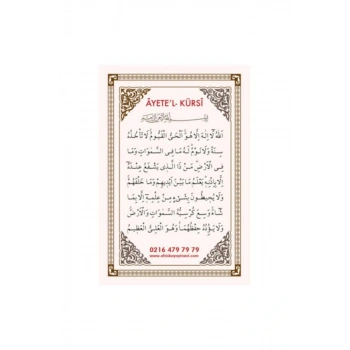 ÂYETE'L- KÜRSÎ
بسم الله الرحمن الرحيم
اَللّٰهُ لَٓا اِلٰهَ اِلَّا هُوَ اَلْحَيُّ الْقَيُّومُ لَا تَأْخُذُهُ
سِنَةٌ وَلَا نَوْمٌ لَهُ مَا فِى السَّمٰوَاتِ وَمَا
فِى الْاَرْضِ مَنْ ذَا الَّذِى يَشْفَعُ عِنْدَهُٓ
اِلَّا بِاِذْنِهِ يَعْلَمُ مَا بَيْنَ اَيْدِيهِمْ وَمَا خَلْفَهُمْ
وَلَا يُحِيطُونَ بِشَىْءٍ مِنْ عِلْمِهِٓ اِلَّا بِمَا
شَٓاءَ وَسِعَ كُرْسِيُّهُ السَّمٰوَاتِ وَالْاَرْضَ
وَلَا يَؤُدُهُ حِفْظُهُمَا وَهُوَ الْعَلِىُّ الْعَظِيمُ
0216 479 79 79